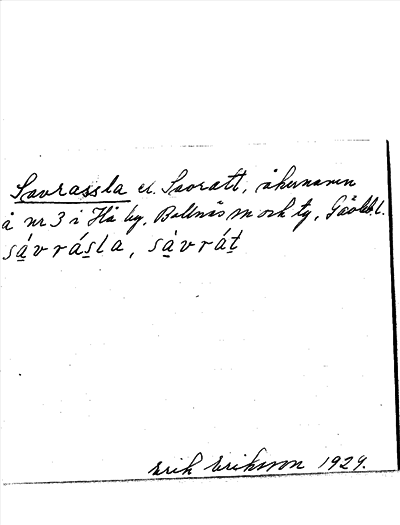 Savrassla el. Savratt, åkernamn
å nr 3 i Hå by, Bollnäs sn och tg, Gävleb. l.
sa̱vrás̱la, sa̱vrát̠
Erik Eriksson 1929.